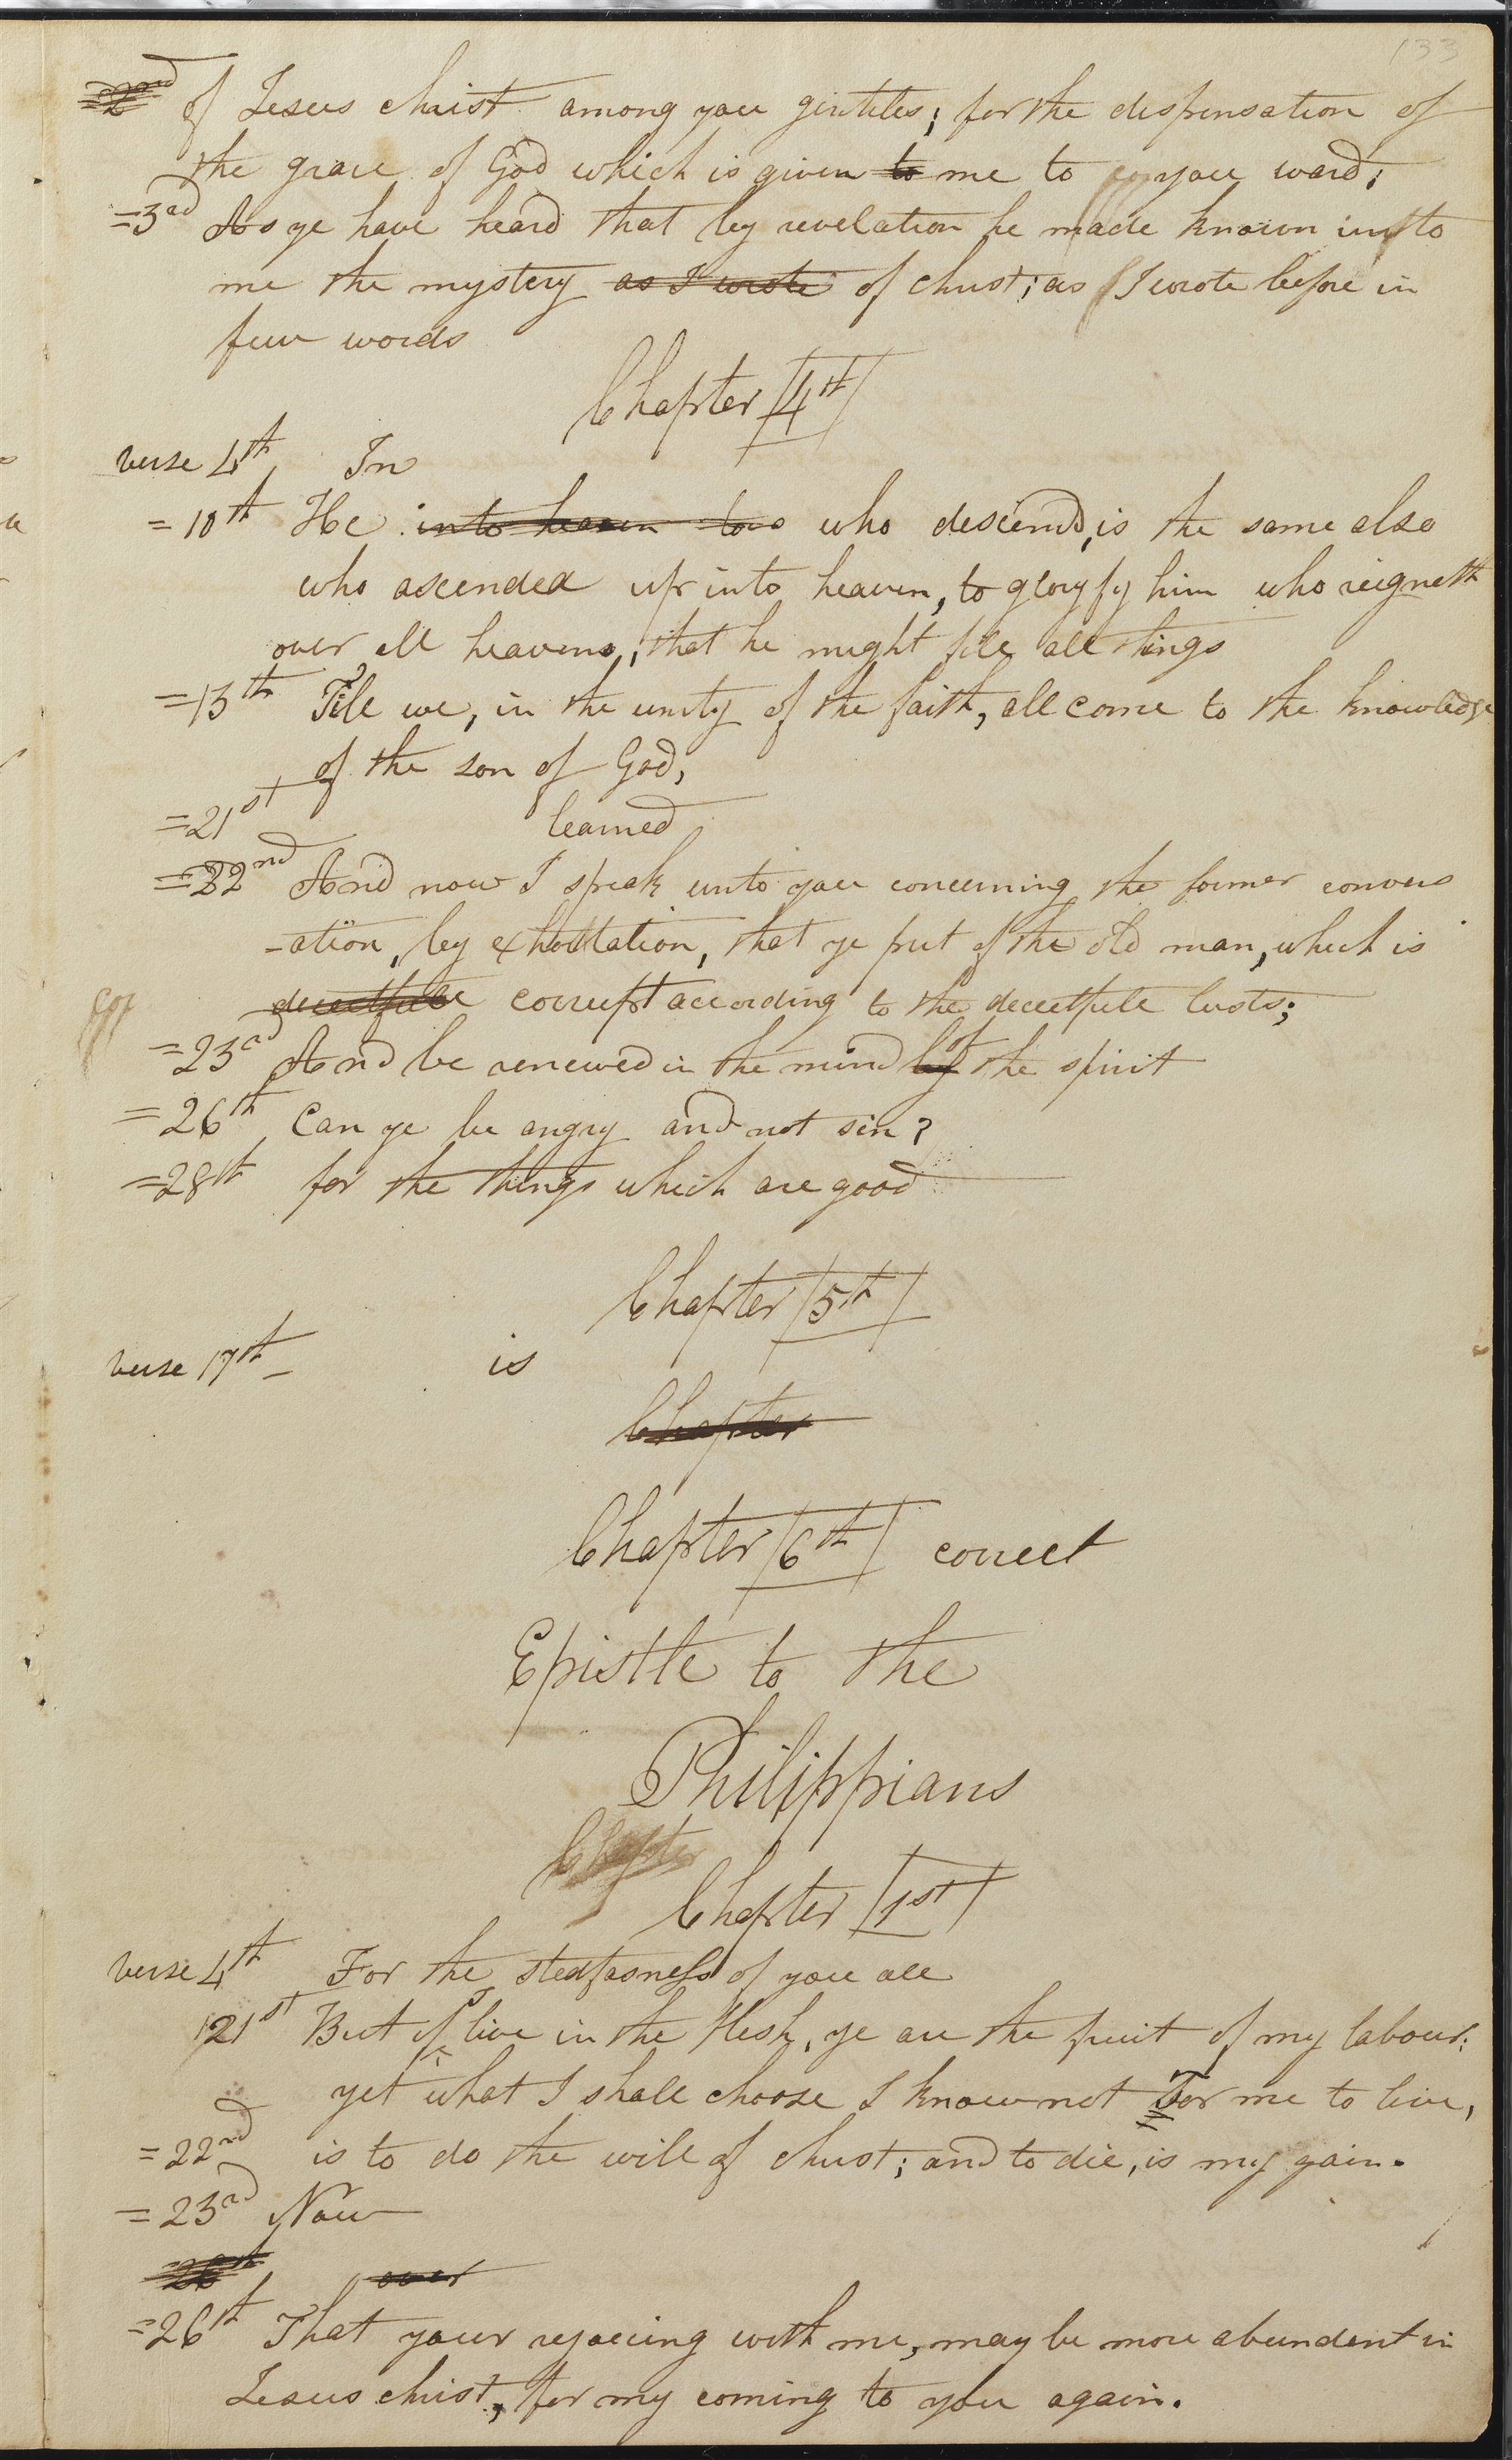 133
=2nd of Jesus christ among you gintiles; for the dispensation of
the grace of God which is given to me to you ward;
=3rd As ye have heard that by revelation he made known unto
me the mystery as I wrote of christ; as I wrote before in
few words
Chapter 4th
verse 4th In
=10th He into heaven who descend, is the same also
who ascended up into heaven, to gloryfy him who reigneth
over all heavens, that he might fill all things
=13th Till we, in the unity of the faith, all come to the knowledge
of the son of God,
=21st learned
=22nd And now I speak unto you concerning the former convers
-ation, by exhortation, that ye put of the old man, which is
deceitfull corrupt according to the deceitfull lusts;
=23rd And be renewed in the mind by of the spirit
=26th Can ye be angry and not sin?
=28th for the things which are good
Chapter 5th
verse 17th – is
Chapter
Chapter 6th correct
Epistle to the
Philippians
Chapter
Chapter 1st
verse 4th For the stedfasness of you all
21st But if I live in the flesh, ye are the fruit of my labour;
yet what I shall choose I know not For me to live,
=22nd is to do the will of christ; and to die, is my gain.
=23rd Now
=26th over
=26th That your rejoicing with me, may be more abundent in
Jesus christ, for my coming to you again.